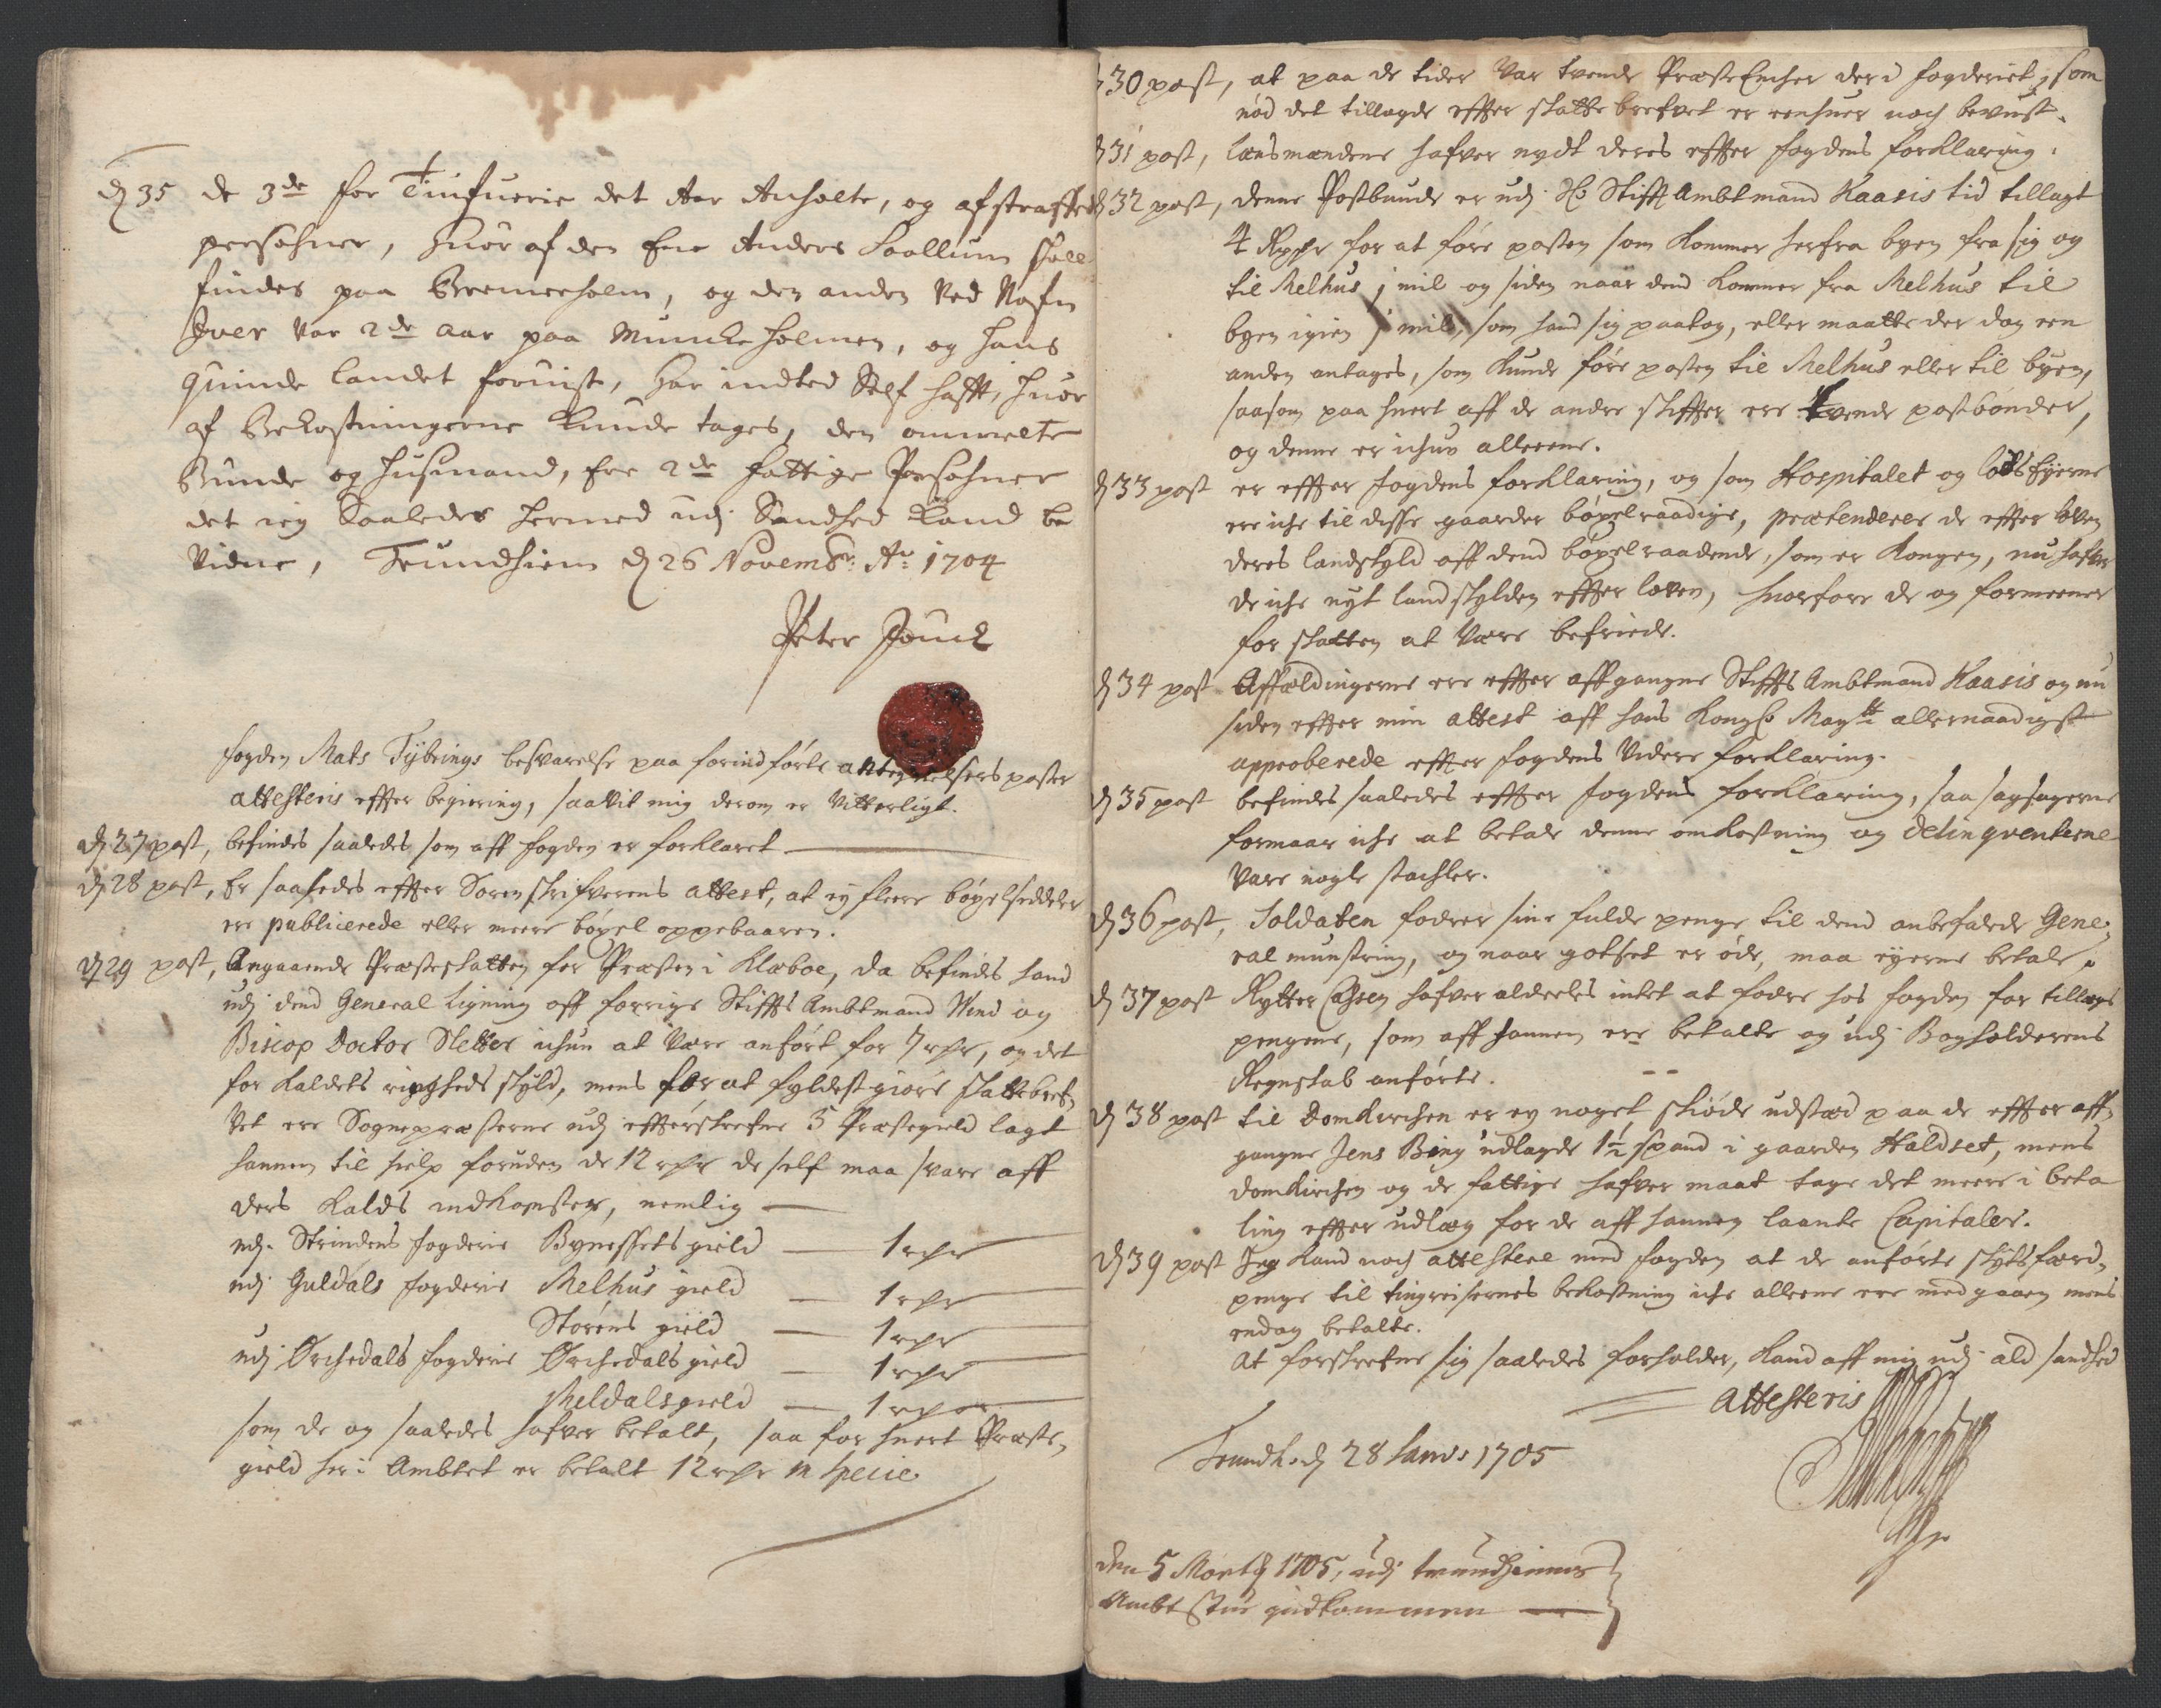 d 35 de 3de for Tiufuerie det Aar Anholte, og afstraffed
persohner, huor af den Ene Anders Soollum skall
findes paa Bremerholm, og den anden Ved Nafn
Iver var 2de aar paa Munckeholmen, og hans
quinde landet foruist, har indted Self hafft, huor
af Bekostningerne kunde tages, den ommelte
Bunde og huusmand, Ere 2de fattige Persohner
det ieg Saaledes hermed udj Sandhed kand be
vidne, Trundhiem d 26 Novembr: Ao: 1704
Peter
fogden Mats Tybrings besvarelse paa forindførte antegnelsers poster
attesteris effter begiering, saavit mig derom er vitterligt.
d 27 post, befindes saaledes som aff fogden er forklaret
d 28 post, Er saaledes effter Sorenskrifverens attest, at ey fleere böxelseddeler
ere publicerede eller meere böxel oppebaaren.
d 29 post, Angaaende Præsteskatten for Præsten i Klæboe, da befindes hand
udj dend General Ligning aff forrige Stiffts Ambtmand Wind og
Biscop Doctor Sletter ichun at være anført for 7 rdr, og det
for kaldets ringheds skyld, mens for at fyldestgiøre skattebref-
vet ere Sognepræsterne udj effterskrefne 5 Præstegield lagt
hannem til hielp foruden de 12 rdr de self maa svare aff
deris kalds indkomster, nemlig
udj Strindens fogderie Bynessets gield 1 rdr
udj Guldals fogderie Melhus gield 1 rdr
Størens gield 1 rdr
udj Orchedals fogderie Orchedals gield 1 rdr
Meldals gield 1 rdr
som de og saaledes hafver betalt, saa for huert Præste-
gield her i Ambtet er betalt 12 rdr in specie.
30 post, at paa de tider var tvende Præste Encher der i fogderiet, som
nød det tillagde effter skatte brefvet er eenhuer noch bevust.
d 31 post, Lænsmændene hafver nydt deres effter fogdens forklaring.
d 32 post, denne Postbunde er udj Hr Stifft Ambtmand Kaasis tid tillagt
4 Rdr for at føre posten som kommer herfra byen fra sig og
til Melhus j mil og siden naar dend kommer fra Melhus til
byen igien j mil, som hand sig paatog, eller maatte der dog een
anden antages, som kunde føre posten til Melhus eller til byen,
saasom paa huert aff de andre skiffter ere tvende postbønder,
og denne er ichun alleene.
d 33 post er effter fogdens forklaring, og som Hospitalet og lodsEyerne
ere iche til disse gaarder böxelraadige, prætenderer de effter loven
deres landskyld aff dend böxelraadende, som er Kongen, nu hafver
de iche nyt landskylden effter loven, huorfore de og formeener
for skatten at være befriede.
d 34 post Affældingerne ere effter affgangne Stiffts Ambtmand Kaasis og nu
siden effter min attest aff hans Kongl Maytt allernaadigst
approberede effter fogdens videre forklaring.
d 35 post befindes saaledes effter fogdens forklaring, saa sagsøgerne
formaar iche at betale denne omkostning og delinqventerne
vare nogle stachler.
d 36 post, Soldaten fodrer sine fulde penge til dend anbefalede Gene-
ral munstring, og naar godset er øde, maa eyerne betale.
d 37 post Rytter Cassen hafver aldeeles intet at fodre hos fogden for tillægs
pengene, som aff hannem ere betalte og udj Bogholderens
Regnskab anførte.
d 38 post til Domkirchen er ey noget skiøde udstæd paa de effter aff-
gangne Jens Bing udlagde 1½ spand i gaarden Haldset, mens
domkirchen og de fattige hafver maat tage det meere i beta
ling effter udlæg for de aff hannem laante Capitaler.
d 39 post Jeg kand noch attestere med fogden at de anførte skytsfærd-
penge til tingreisernes bekostning iche alleene ere medgaaen mens
endog betalte.
At forskrefne sig saaledes forholder, kand aff mig udj ald sandhed
attesteris
Trundh. d 28 Janvr 1705
den 5 Marty 1705, udj trundhiems
Ambt Stue indkommen